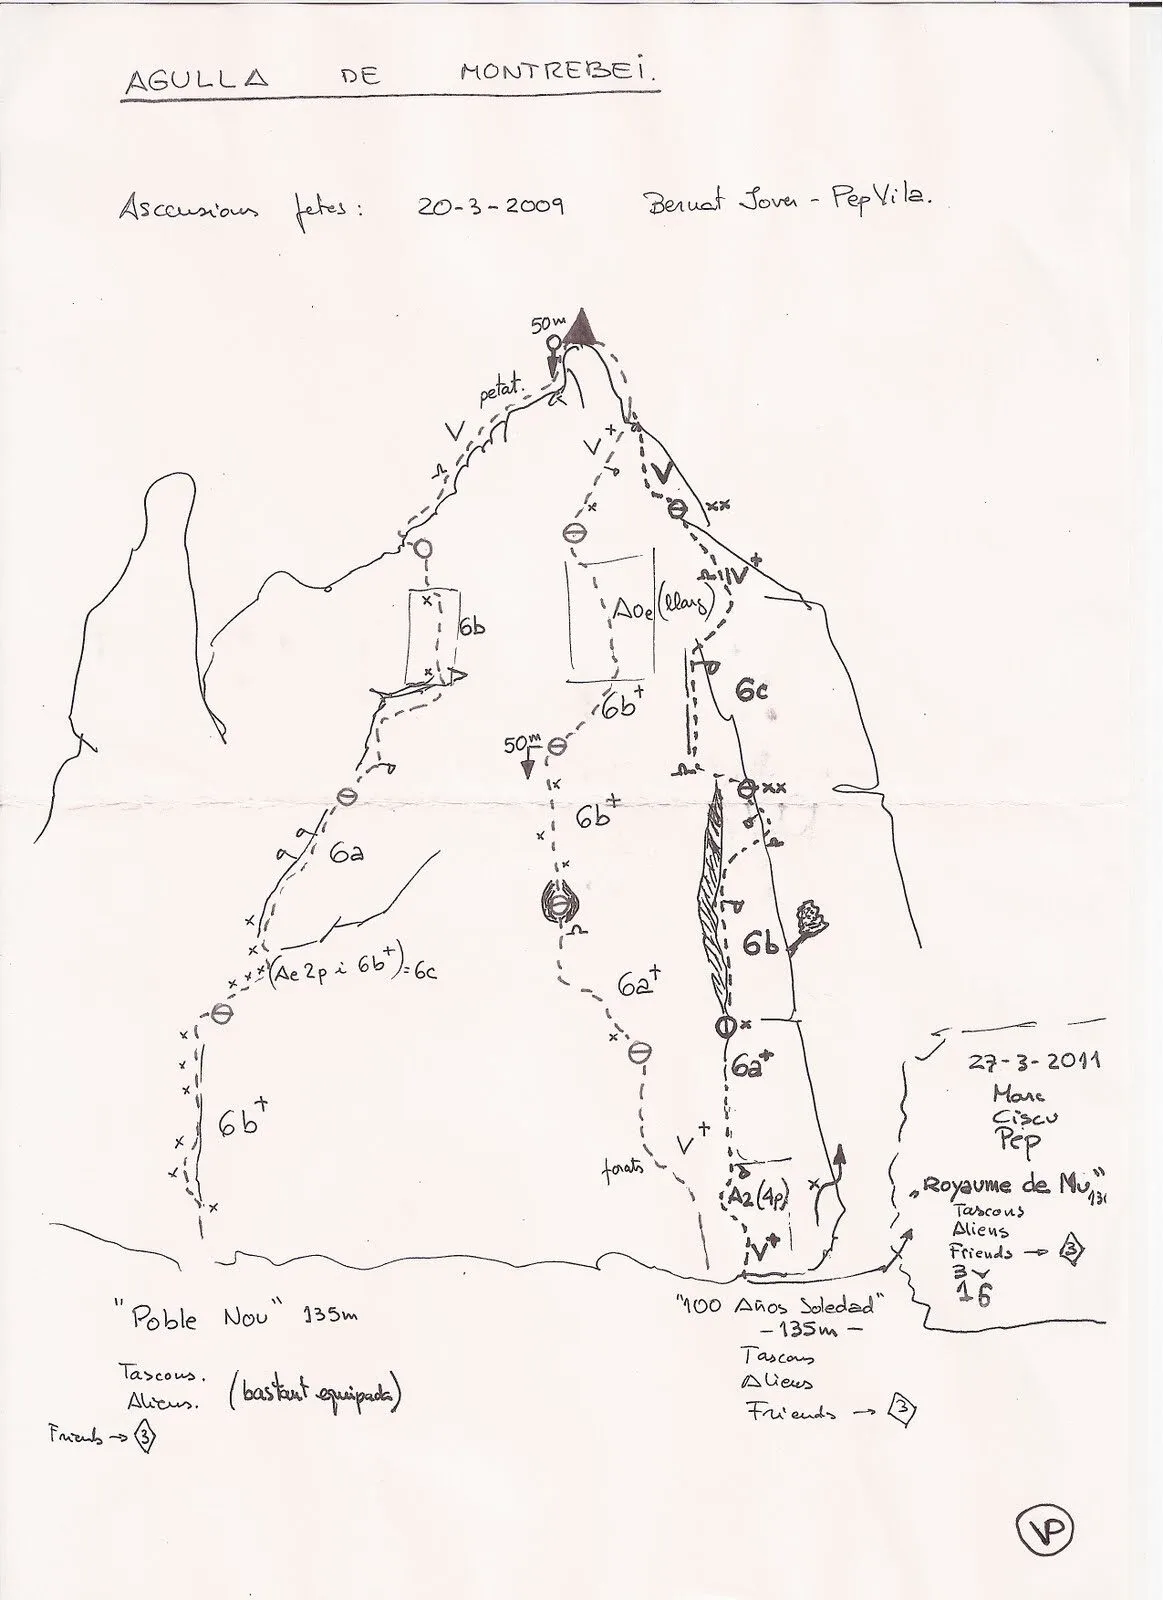 AGULLA DE MONTREBEI.
Asccusions fetes: 20-3-2009 Bernat Jover - Pep Vila.
50m
petat.
V
V+
V
xx
IV+
6b
A0e (llarg)
6c
6b+
50m
xx
6b+
6a
6b
(Ae 2p i 6b+)=6c
6a+
6a+
6b+
V+
forats
A2 (4p)
V+
27-3-2011
Marc
Ciscu
Pep
"Royaume de Mu"
Tascons
Aliens
Friends → 3
16
"Poble Nou" 135m
Tascons.
Aliens. (bastant equipada)
Friends → 3
"100 Años Soledad"
-135m-
Tascons
Aliens
Friends → 3
VP